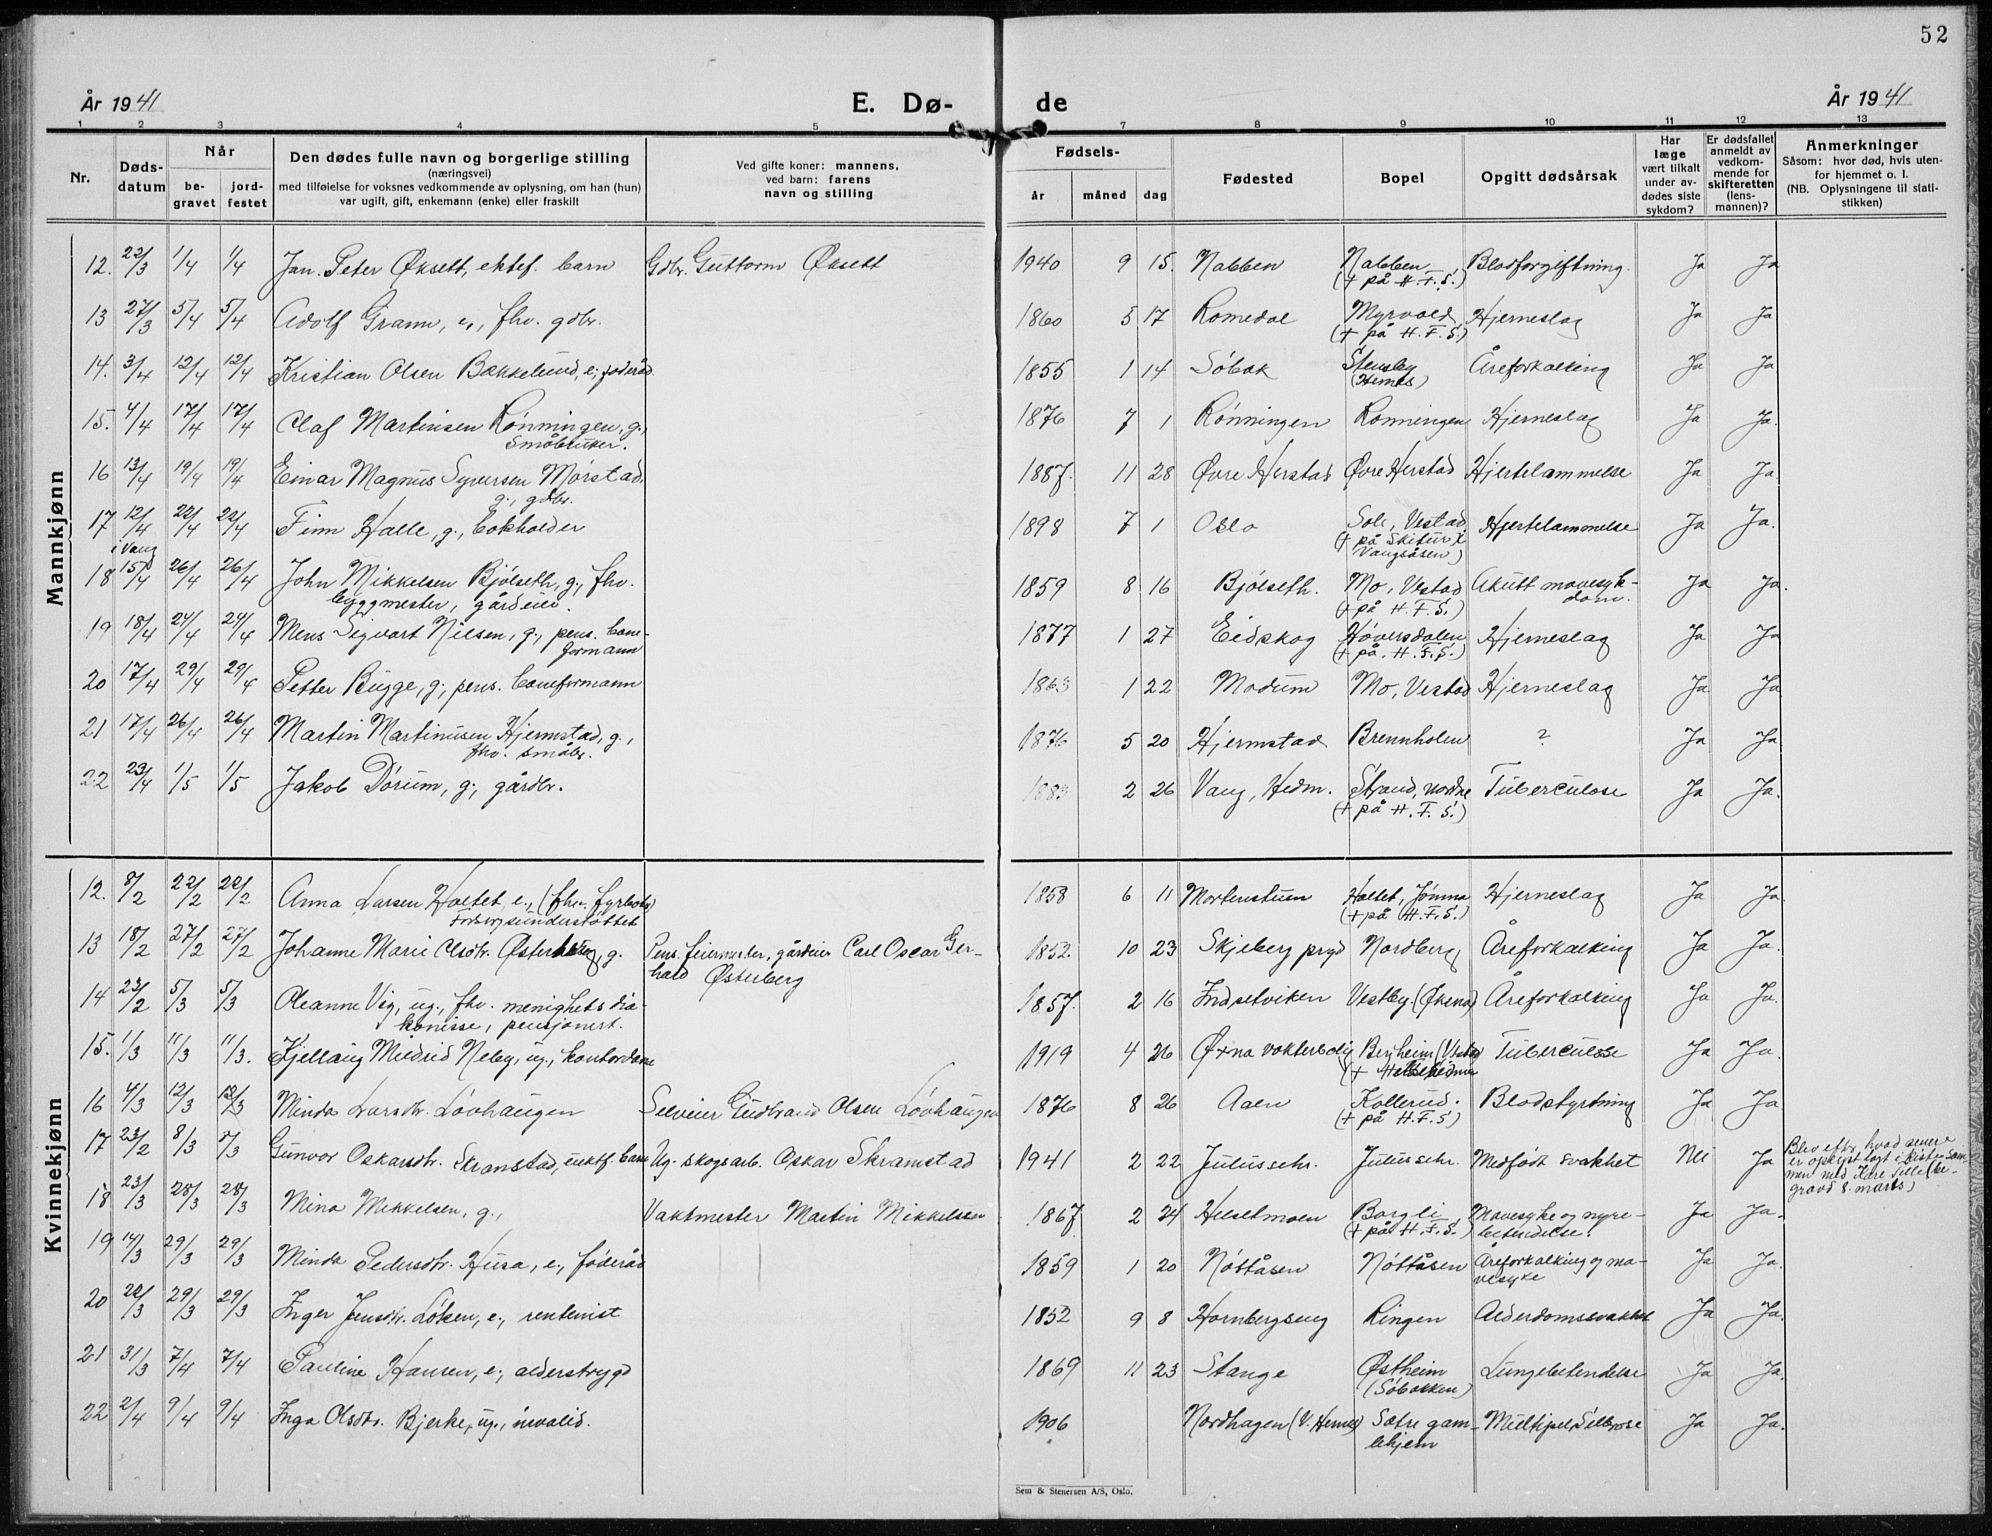 52
År 1941 E. Dø- de År 1941
1 2 3 4 5 7 8 9 10 11 12 13
Nr. Døds-datum Når be-gravet jord-festet
Den dødes fulle navn og borgerlige stilling
(næringsvei)
med tilføielse for voksnes vedkommende av oplysning, om han (hun)
var ugift, gift, enkemann (enke) eller fraskilt
Ved gifte koner: mannens,
ved barn: farens
navn og stilling
Fødsels- år måned dag
Fødested Bopel Opgitt dødsårsak
Har læge vært tilkalt under av-dødes siste sykdom?
Er dødsfallet anmeldt av vedkom-mende for skifteretten (lens-mannen)?
Anmerkninger
Såsom: hvor død, hvis uten-
for hjemmet o. l.
(NB. Oplysningene til stati-
stikken)
Mannkjønn
12. 22/3 1/4 1/4 Jan Peter Øksett, ektef. barn Gdbr. Guttorm Øksett 1940 9 15. Nabben Nabben (+ på H.F.S.) Blodforgiftning. Ja Ja
13 27/3 5/4 5/4 Adolf Gramm, e., fhv. gdbr. 1860 5 17 Romedal Myrvold (+ på H.F.S.) Hjerneslag Ja Ja
14. 3/4 12/4 12/4 Kristian Olsen Bakkelund, e., føderåd 1855 1 14 Søbak Stensby (Hernes) Åreforkalking Ja Ja
15. 4/4 17/4 17/4 Olaf Martinsen Rønningen, g., småbruker. 1876 7 1 Rønningen Rønningen Hjerneslag Ja Ja.
16 13/4 19/4 19/4 Einar Magnus Syversen Mørstad, g., gdbr. 1887. 11 28 Øvre Herstad Øvre Herstad Hjertelammelse Ja Ja
17 12/4 i Vang 22/4 22/4 Finn Halle, g., bokholder 1898 7 1 Oslo Sole, Vestad (+ på skitur i Vangsåsen) Hjertelammelse Ja Ja.
18 15/4 26/4 26/4 John Mikkelsen Bjølseth, g., fhv. byggmester, gårdeier. 1859 8 16 Bjølseth. Mo, Vestad (+ på H.F.S.) Akutt mavesyk-dom. Ja Ja.
19 18/4 24/4 24/4 Mens Sigvart Nilsen, g., pens. bane-formann 1877 1 27 Eidskog Høversdalen (+ på. H.F.S.) Hjerneslag Ja Ja
20 17/4 29/4 29/4 Petter Bugge, g., pens. baneformann 1863 1 22 Modum Mo, Vestad Hjerneslag Ja Ja
21 17/4 26/4 26/4 Martin Martinusen Hjermstad, g., fhv. småbr. 1876 5 20 Hjermstad Brennholen ? Ja Ja
22 23/4 1/5 1/5 Jakob Dørum, g., gårdbr. 1883 2 26 Vang, Hedm. Strand, nordre (+ på H.F.S.) Tuberculose Ja Ja.
Kvinnekjønn
12. 8/2 22/2 22/2 Anna Larsen Holtet, e., (fhv. fyrbøter) Forsorgsunderstøttet 1858 6 11 Mortenstuen Holtet, Jømna (+ på H.F.S.) Hjerneslag Ja Ja.
13 18/2 27/2 27/2 Johanne Marie Olsdtr. Østerberg, g. Pens. feiermester, gårdeier Carl Oscar Ger-hard Østerberg 1852. 10 23 Skjeberg prgd Nordberg Åreforkalking Ja Ja.
14 23/2 5/3 5/3 Oleanne Vig, ug., fhv. menighetsdia-konisse, pensjonert. 1857. 2 16 Indsetviken Vestby (Øksna) Åreforkalking Ja Ja.
15. 1/3 11/3 11/3. Kjellaug Mildrid Neby, ug., kontordame 1919 4 26 Øxna vokterbolig Bergheim (Vestad) Tuberculose Ja Ja.
16 4/3 12/3 12/3 Minda Larsdtr. Løvhaugen Selveier Gudbrand Olsen Løvhaugen 1876 8 26 Aalen Kollerud. (+ på H.F.S) Blodstyrtning Ja Ja
17 23/2 8/3 8/3 Gunvor Oskarsdtr. Skramstad, uektf. barn Ug. skogsarb. Oskar Skramstad 1941 2 22 Julussehr. Julussehr. Medfødt svakhet Nei Ja Blev eftr. hvad senere er opklart lagt i kiste sam-men med Kåre Tille (be-gravd 8. mars)
18 23/3 28/3 28/3 Mina Mikkelsen, g., Vaktmester Martin Mikkelsen 1867 2 24 Helsetmoen Borgli (+ på H.F.S.) Mavesyke og nyre-betendelse. Ja Ja.
19 14/3 29/3 29/3 Minda Pedersdtr. Husa, e., føderåd 1859 1 20 Nøttåsen Nøttåsen Åreforkalking og ma-vesyke Ja Ja.
20 22/3 29/3 29/3 Inger Jensdtr. Løken, e., rentenist 1852 9 8 Hornbergseng Ringen Alderdomssvakhet Ja Ja.
21 31/3 7/4 7/4 Pauline Hansen, e., alderstrygd 1869 11 23 Stange Østheim (Søbakken) Lungebetendelse Ja Ja.
22 2/4 9/4 9/4 Inga Olsdtr. Bjerke, ug., invalid. 1906 Nordhagen (V. Hernes) Sætre gam-lehjem Multipel Sclerose Ja Ja.
Sem & Stenersen A/S, Oslo.